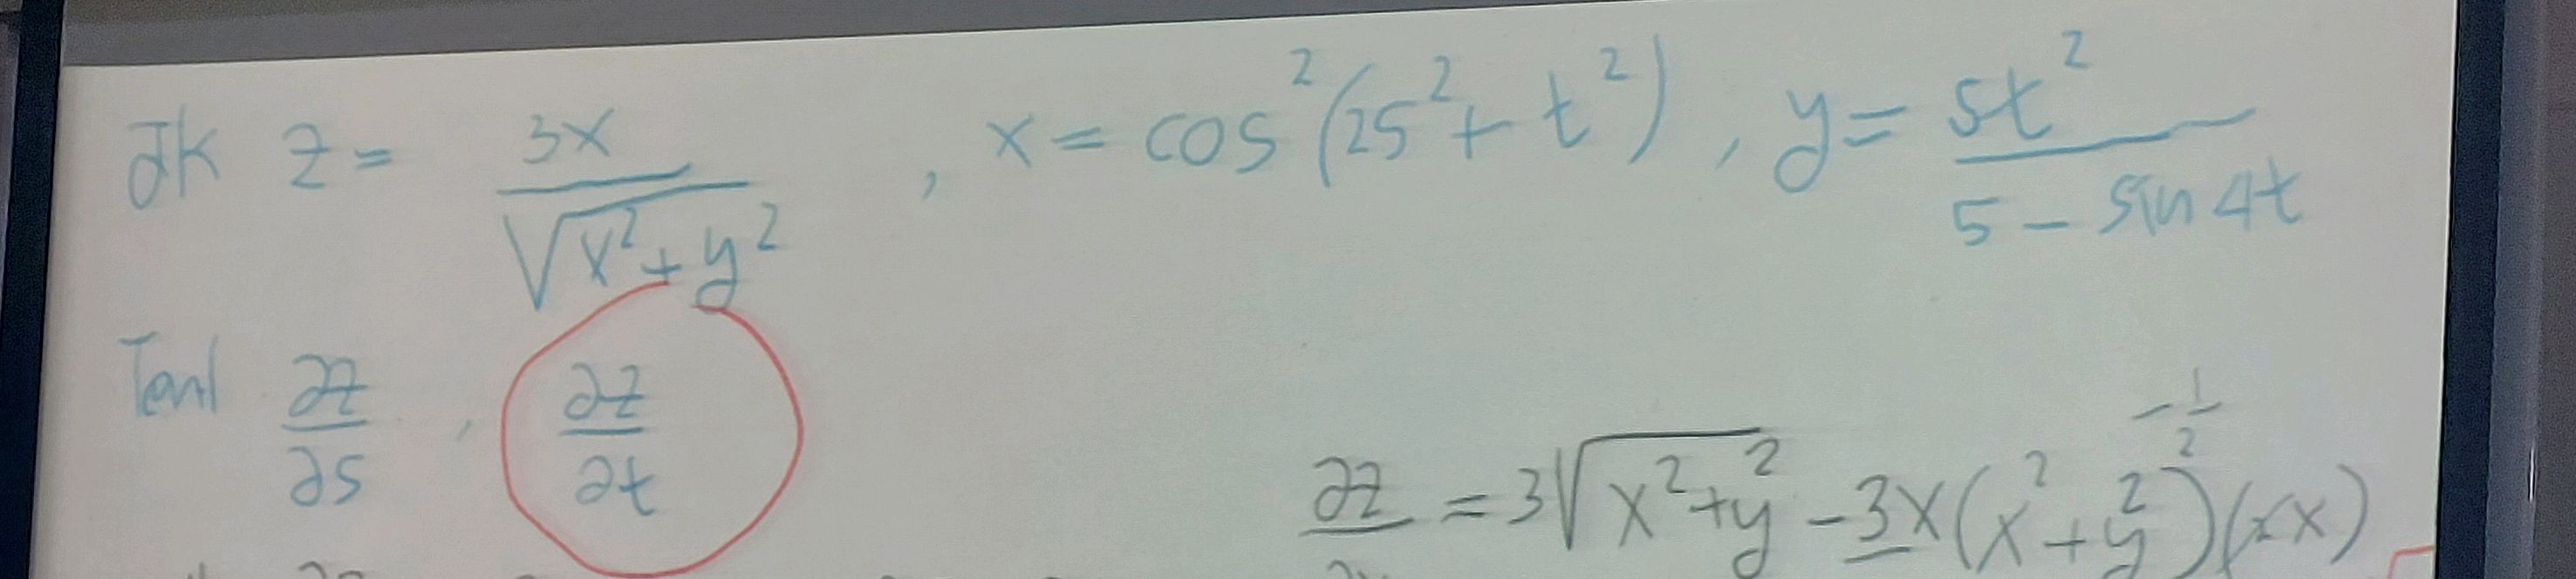 Jk z = 3x / √(x² + y²) , x = cos²(2s² + t²) , y = st² / (5 - sin 4t)
∂z/∂s , ∂z/∂t
∂z = 3√(x² + y²) - 3x(x² + y²)^(-1/2)